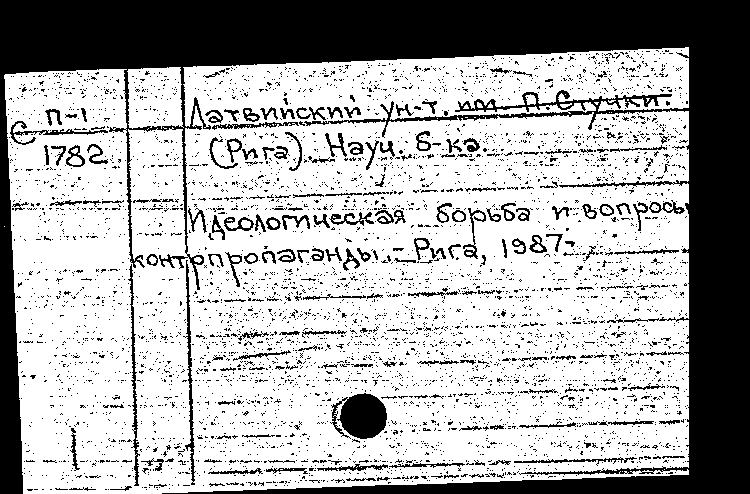 С П-1
1782
Латвийский ун-т. им. П. Стучки.
(Рига). Науч. б-ка
Идеологическая борьба и вопросы
контрпропаганды. - Рига, 1987-